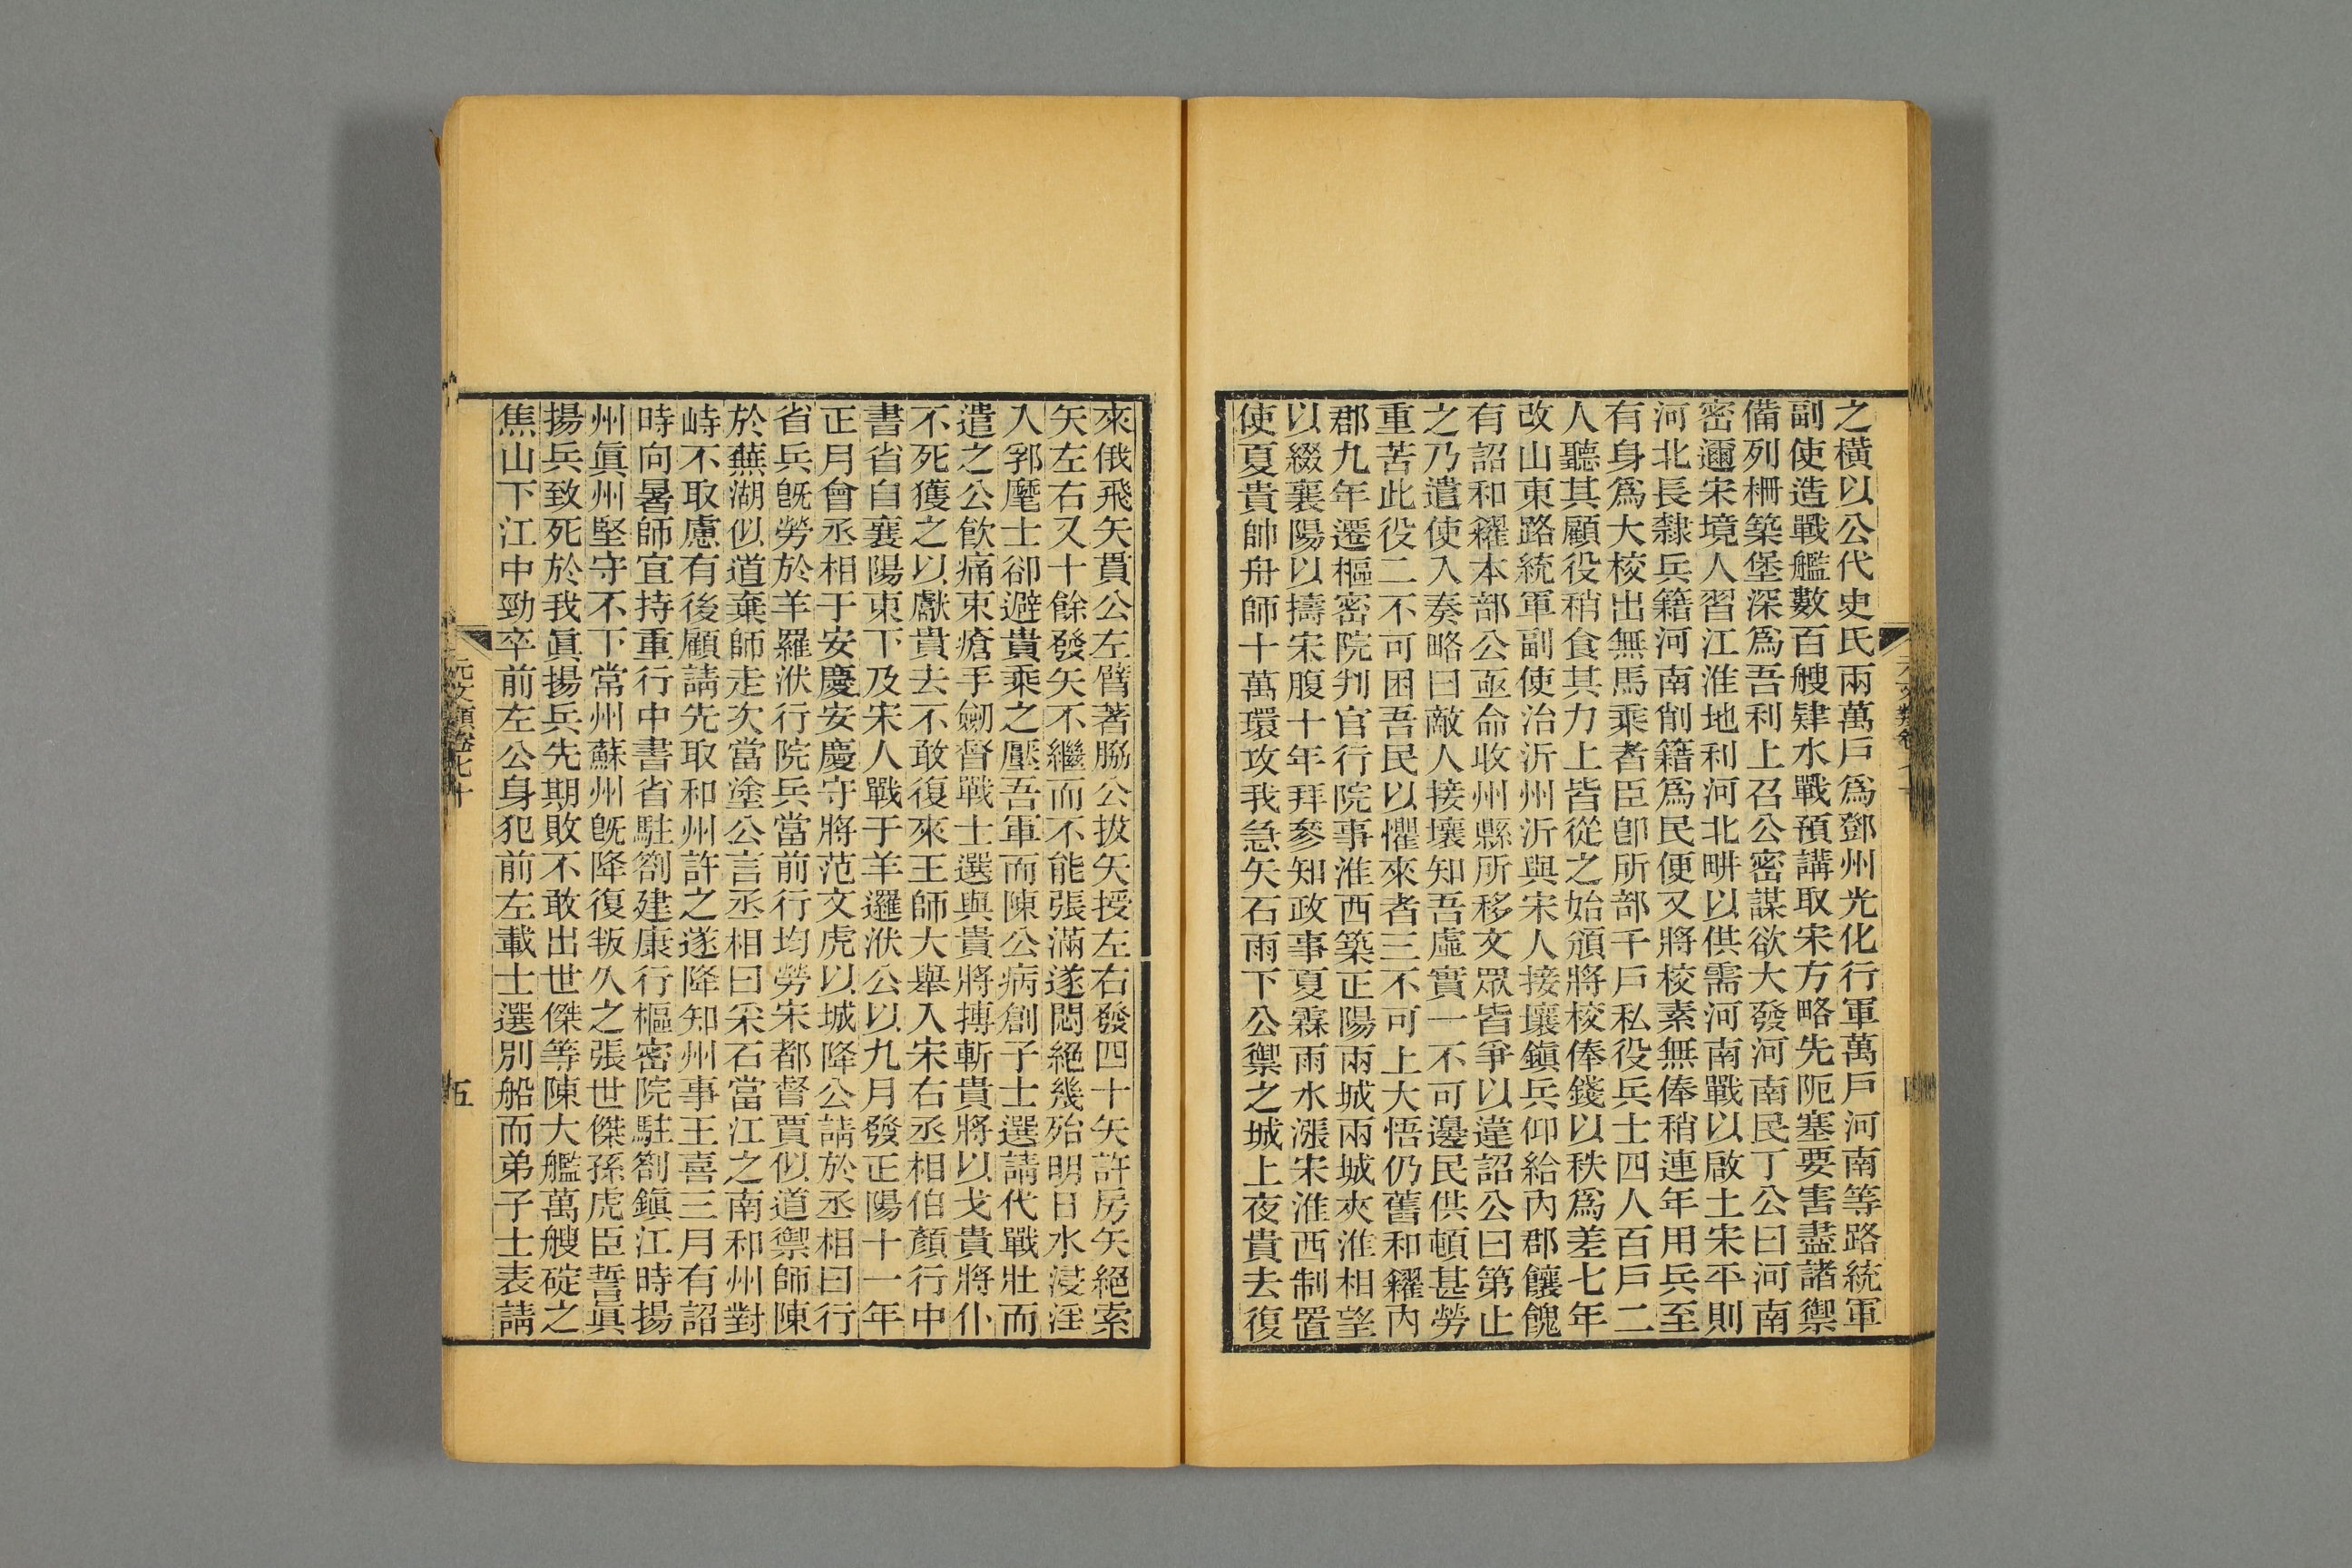 之橫以公代史氏兩萬戶爲鄧州光化行軍萬戶河南等路統軍
副使造戰艦數百艘肄水戰預講取宋方略先阨塞要害盡諸禦
備列柵築堡深爲吾利上召公密謀欲大發河南民丁公曰河南
密邇宋境人習江淮地利河北畊以供需河南戰以啟土宋平則
河北長隸兵籍河南削籍爲民便又將校素無俸稍連年用兵至
有身爲大校出無馬乘者臣卽所部千戶私役兵士四人百戶二
人聽其顧役稍食其力上皆從之始頒將校俸錢以秩爲差七年
改山東路統軍副使治沂州沂與宋人接壤鎭兵仰給內郡饟餽
有詔和糴本部公亟命收州縣所移文眾皆爭以違詔公曰第止
之乃遣使入奏略曰敵人接壤知吾虛實一不可邊民供頓甚勞
重苦此役二不可困吾民以懼來者三不可上大悟仍舊和糴內
郡九年遷樞密院判官行院事淮西築正陽兩城兩城夾淮相望
以綴襄陽以擣宋腹十年拜參知政事夏霖雨水漲宋淮西制置
使夏貴帥舟師十萬環攻我急矢石雨下公禦之城上夜貴去復
來俄飛矢貫公左臂著脇公拔矢授左右發四十矢許房矢絕索
矢左右又十餘發矢不繼而不能張滿遂悶絕幾殆明日水浸淫
入郛麾士卻避貴乘之壓吾軍而陳公病創子士選請代戰壯而
遣之公飮痛束瘡手劒督戰士選與貴將摶斬貴將以戈貴將仆
不死獲之以獻貴去不敢復來王師大舉入宋右丞相伯顏行中
書省自襄陽東下及宋人戰于羊邏洑公以九月發正陽十一年
正月會丞相于安慶安慶守將范文虎以城降公請於丞相曰行
省兵旣勞於羊羅洑行院兵當前行均勞宋都督賈似道禦師陳
於蕪湖似道棄師走次當塗公言丞相曰采石當江之南和州對
峙不取慮有後顧請先取和州許之遂降知州事王喜三月有詔
時向暑師宜持重行中書省駐劄建康行樞密院駐劄鎭江時揚
州眞州堅守不下常州蘇州旣降復叛久之張世傑孫虎臣誓眞
揚兵致死於我眞揚兵先期敗不敢出世傑等陳大艦萬艘碇之
焦山下江中勁卒前左公身犯前左載士選別船而弟子士表請
元文類卷七十
五